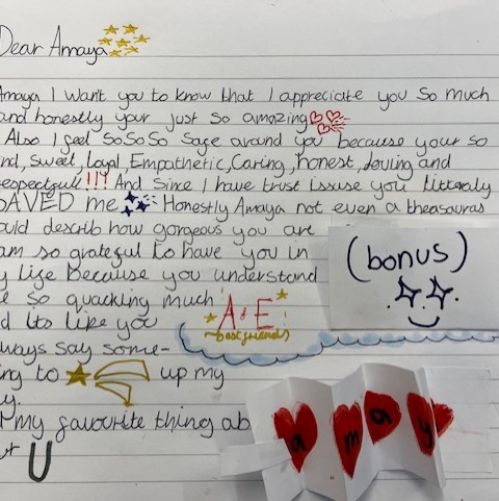 Dear Amaya
Amaya I want you to know that I appreciate you so much
and honestly your just so amazing
Also I feel SoSoSo safe around you because your so
ind, Sweet, Loyal, Empathetic, Caring, honest, loving and
respectfull!!! And since I have trust issuse you litteraly
SAVED me Honestly Amaya not even a theasauras
ould describ how gorgeous you are
am so grateful to have you in
y life because you understand
e so quacking much
d its like you
lways say some-
ing to up my
y.
my favourite thing ab
U
A & E
best friends
(bonus)
a m a y